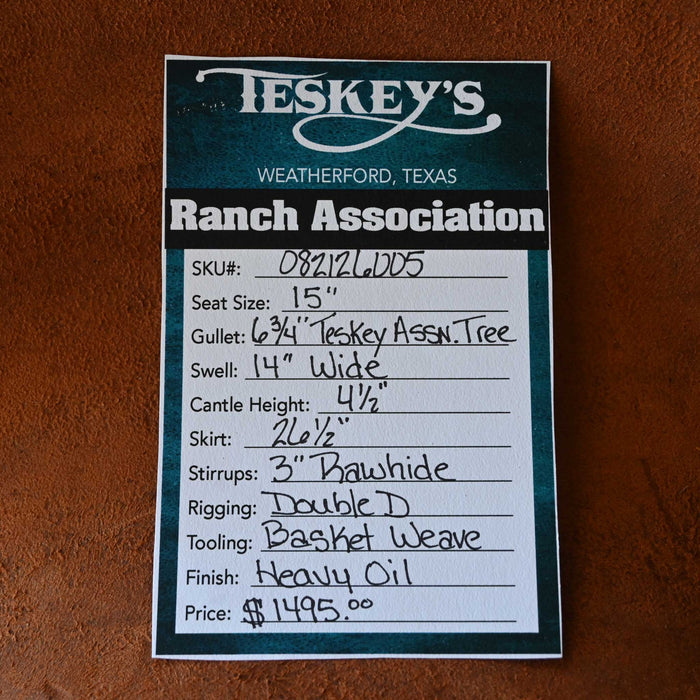 TESKEY'S
WEATHERFORD, TEXAS
Ranch Association
SKU#: 082126005
Seat Size: 15"
Gullet: 6 3/4" Teskey Assn. Tree
Swell: 14" Wide
Cantle Height: 4 1/2"
Skirt: 26 1/2"
Stirrups: 3" Rawhide
Rigging: Double D
Tooling: Basket Weave
Finish: Heavy Oil
Price: $1495.00